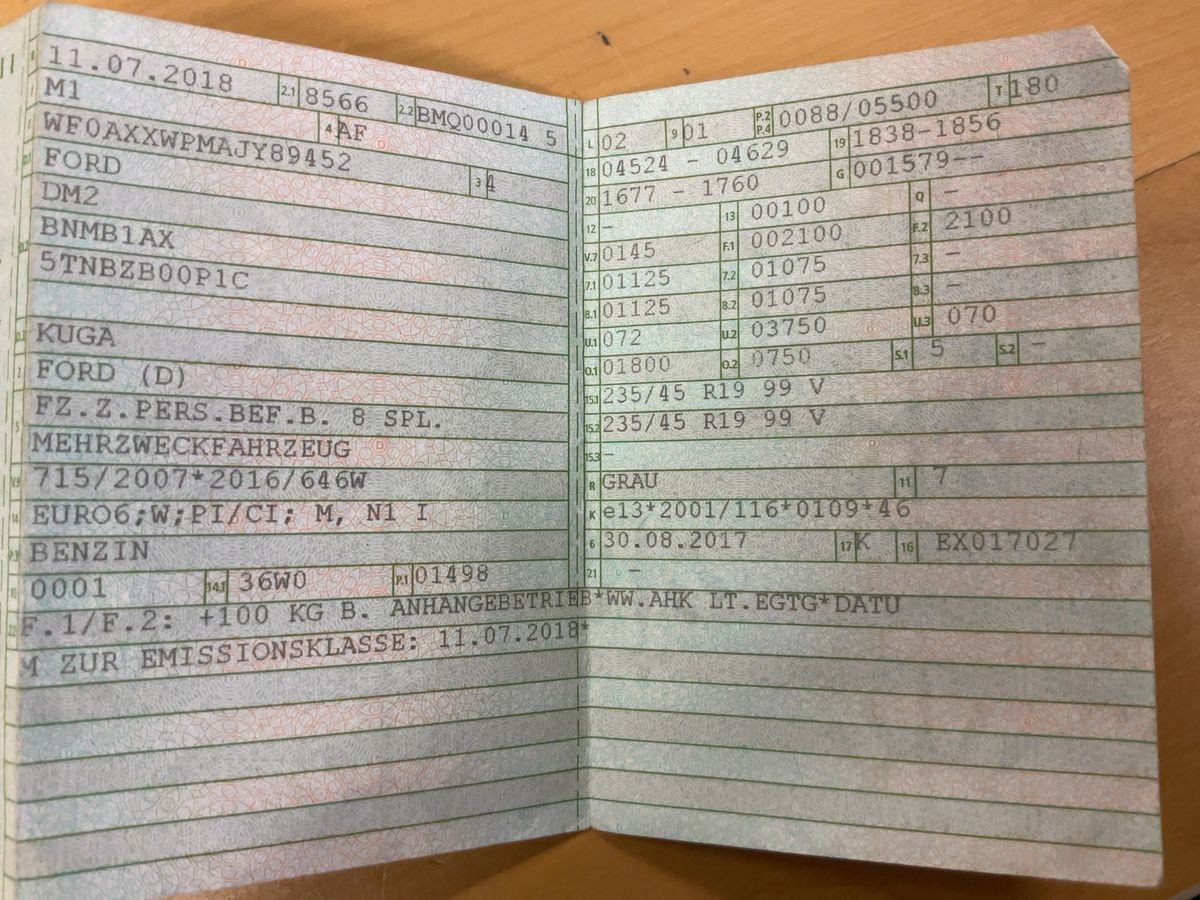 11.07.2018 2.1 8566 2.2 BMQ00014 5
M1 4 AF
WF0AXXWPMAJY89452 3 4
FORD
DM2
BNMB1AX
5TNBZB00P1C
KUGA
FORD (D)
FZ.Z.PERS.BEF.B. 8 SPL.
MEHRZWECKFAHRZEUG
715/2007*2016/646W
14 EURO6;W;PI/CI; M, N1 I
P.3 BENZIN
10 0001 14.1 36W0 P.1 01498
22 F.1/F.2: +100 KG B. ANHANGEBETRIEB*WW.AHK LT.EGTG*DATU
M ZUR EMISSIONSKLASSE: 11.07.2018*
L 02 9 01 P.2 P.4 0088/05500 T 180
18 04524 - 04629 19 1838-1856
20 1677 - 1760 G 001579--
12 - 13 00100 Q -
V.7 0145 F.1 002100 F.2 2100
7.1 01125 7.2 01075 7.3 -
8.1 01125 8.2 01075 8.3 -
U.1 072 U.2 03750 U.3 070
O.1 01800 O.2 0750 S.1 5 S.2 -
15.1 235/45 R19 99 V
15.2 235/45 R19 99 V
15.3 -
R GRAU 11 7
K e13*2001/116*0109*46
6 30.08.2017 17 K 16 EX017027
21 -